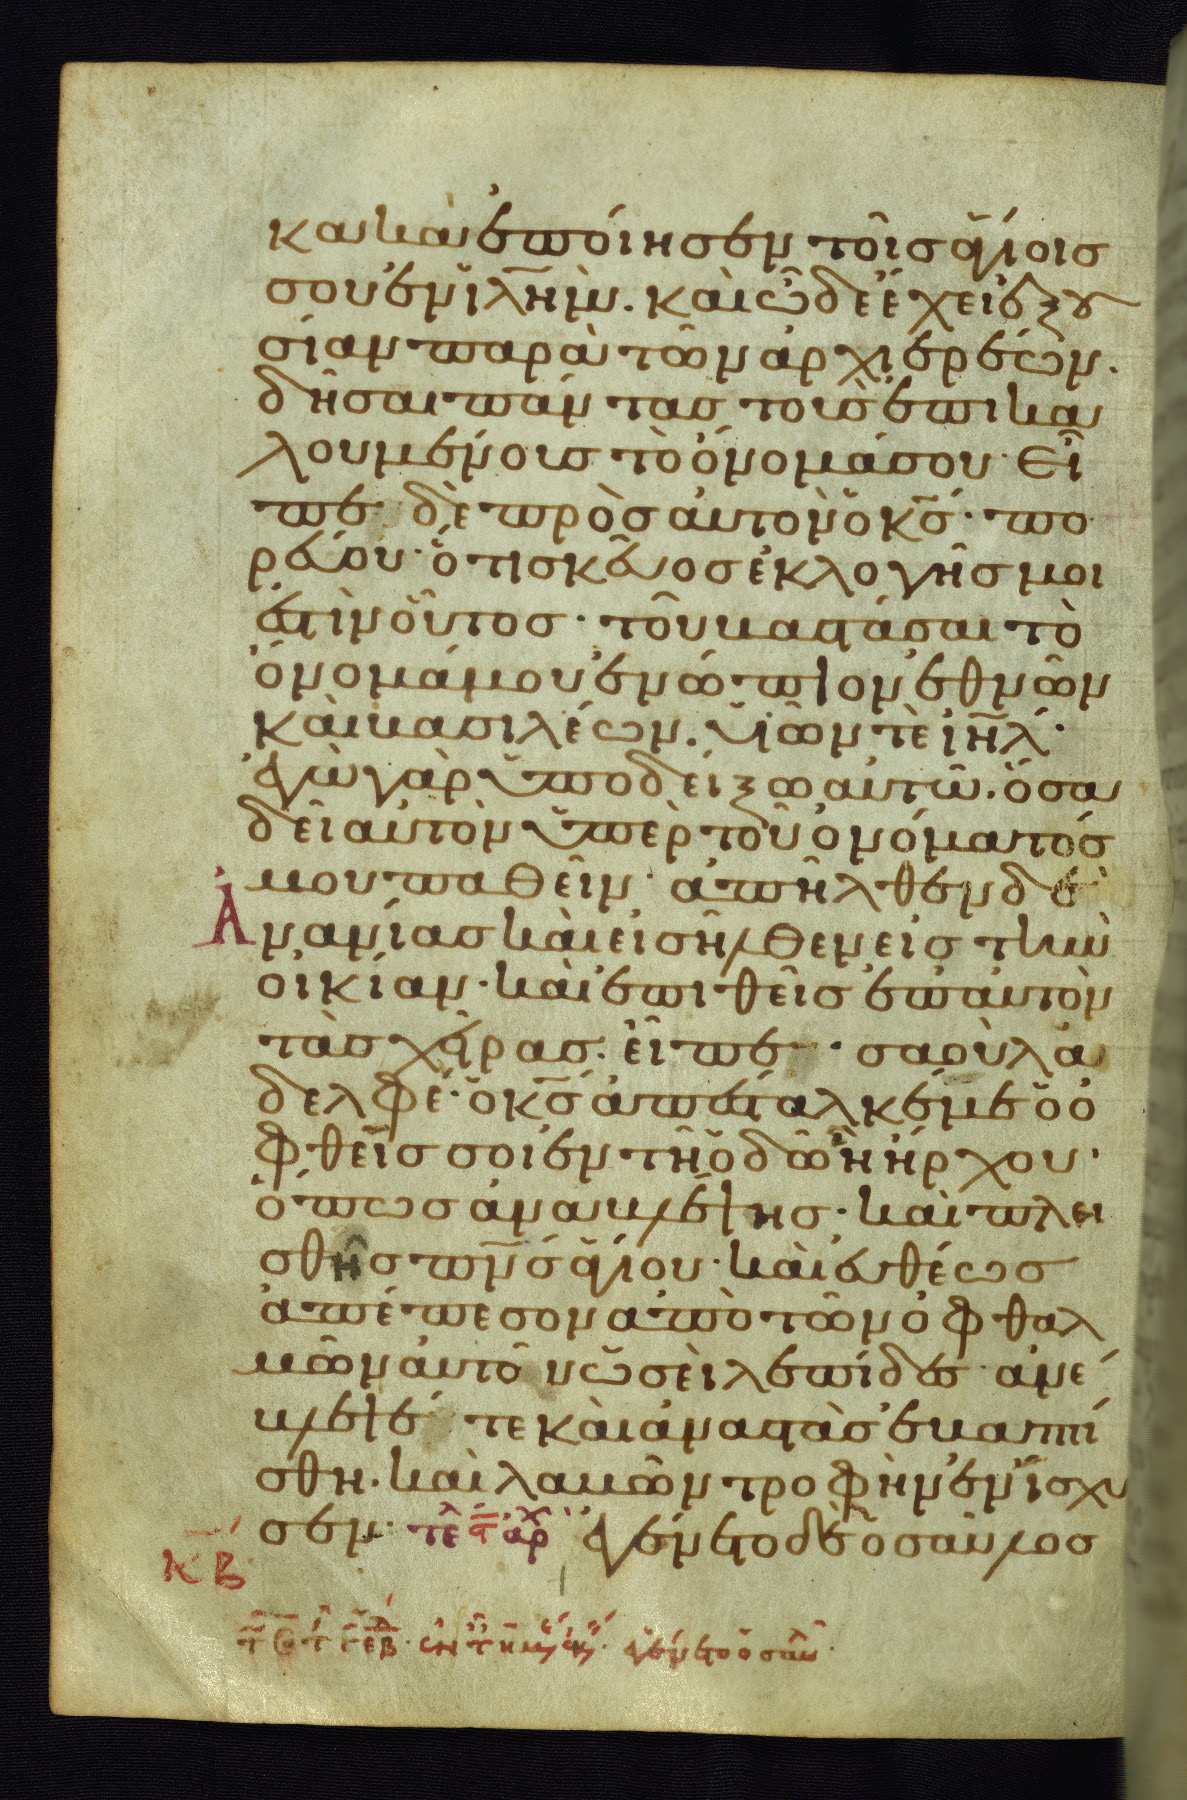 κακὰ ἐποίησεν τοῖς ἁγίοις
σου ἐν ἰλῆμ. καὶ ὧδε ἔχει ἐξου
σίαν παρὰ τῶν ἀρχιερέων.
δῆσαι πάντας τοὺς ἐπικα
λουμένους τὸ ὄνομά σου· Εἶ
πε δὲ πρὸς αὐτὸν ὁ κς· πο
ρεύου· ὅτι σκεῦος ἐκλογῆς μοι
ἐστὶν οὗτος· τοῦ βαστάσαι τὸ
ὄνομά μου ἐνώπιον ἐθνῶν
καὶ βασιλέων. ὑιῶν τὲ ιηλ·
ἐγὼ γὰρ ὑποδείξω αὐτῶ. ὅσα
δεῖ αὐτὸν ὑπὲρ τοῦ ὀνόματός
μου παθεῖν· ἀπῆλθεν δὲ
Ἀνανίας καὶ εἰσῆλθεν εἰς τὴν
οἰκίαν· καὶ ἐπιθεὶς ἐπ αὐτὸν
τὰς χεῖρας. εἶπε· σαοὺλ ἀ
δελφέ· ὁ κς ἀπέσταλκέν με ὁ ὀ
φθείς σοι ἐν τῆ ὁδῶ ἧ ἤρχου·
ὅπως ἀναβλέψης· καὶ πλει
σθῆς πνς ἁγίου· καὶ εὐθέως
ἀπέπεσον ἀπὸ τῶν ὀφθαλ
μῶν αὐτοῦ ὡσεὶ λεπίδες· ἀνέ
βλεψέ τε καὶ ἀναστὰς ἐβαπτί
σθη. καὶ λαβὼν τροφὴν ἐνίσχυ
σεν· τε αρχ ἐγένετο δὲ ὁ σαῦλος
ΚΒ
ἐγένετο ὁ σαῦλ